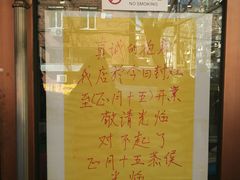 NO SMOKING
真诚的抱歉
我店于今日封灶
至(正月十五)开业
敬请光临
对不起了
正月十五恭候
光临